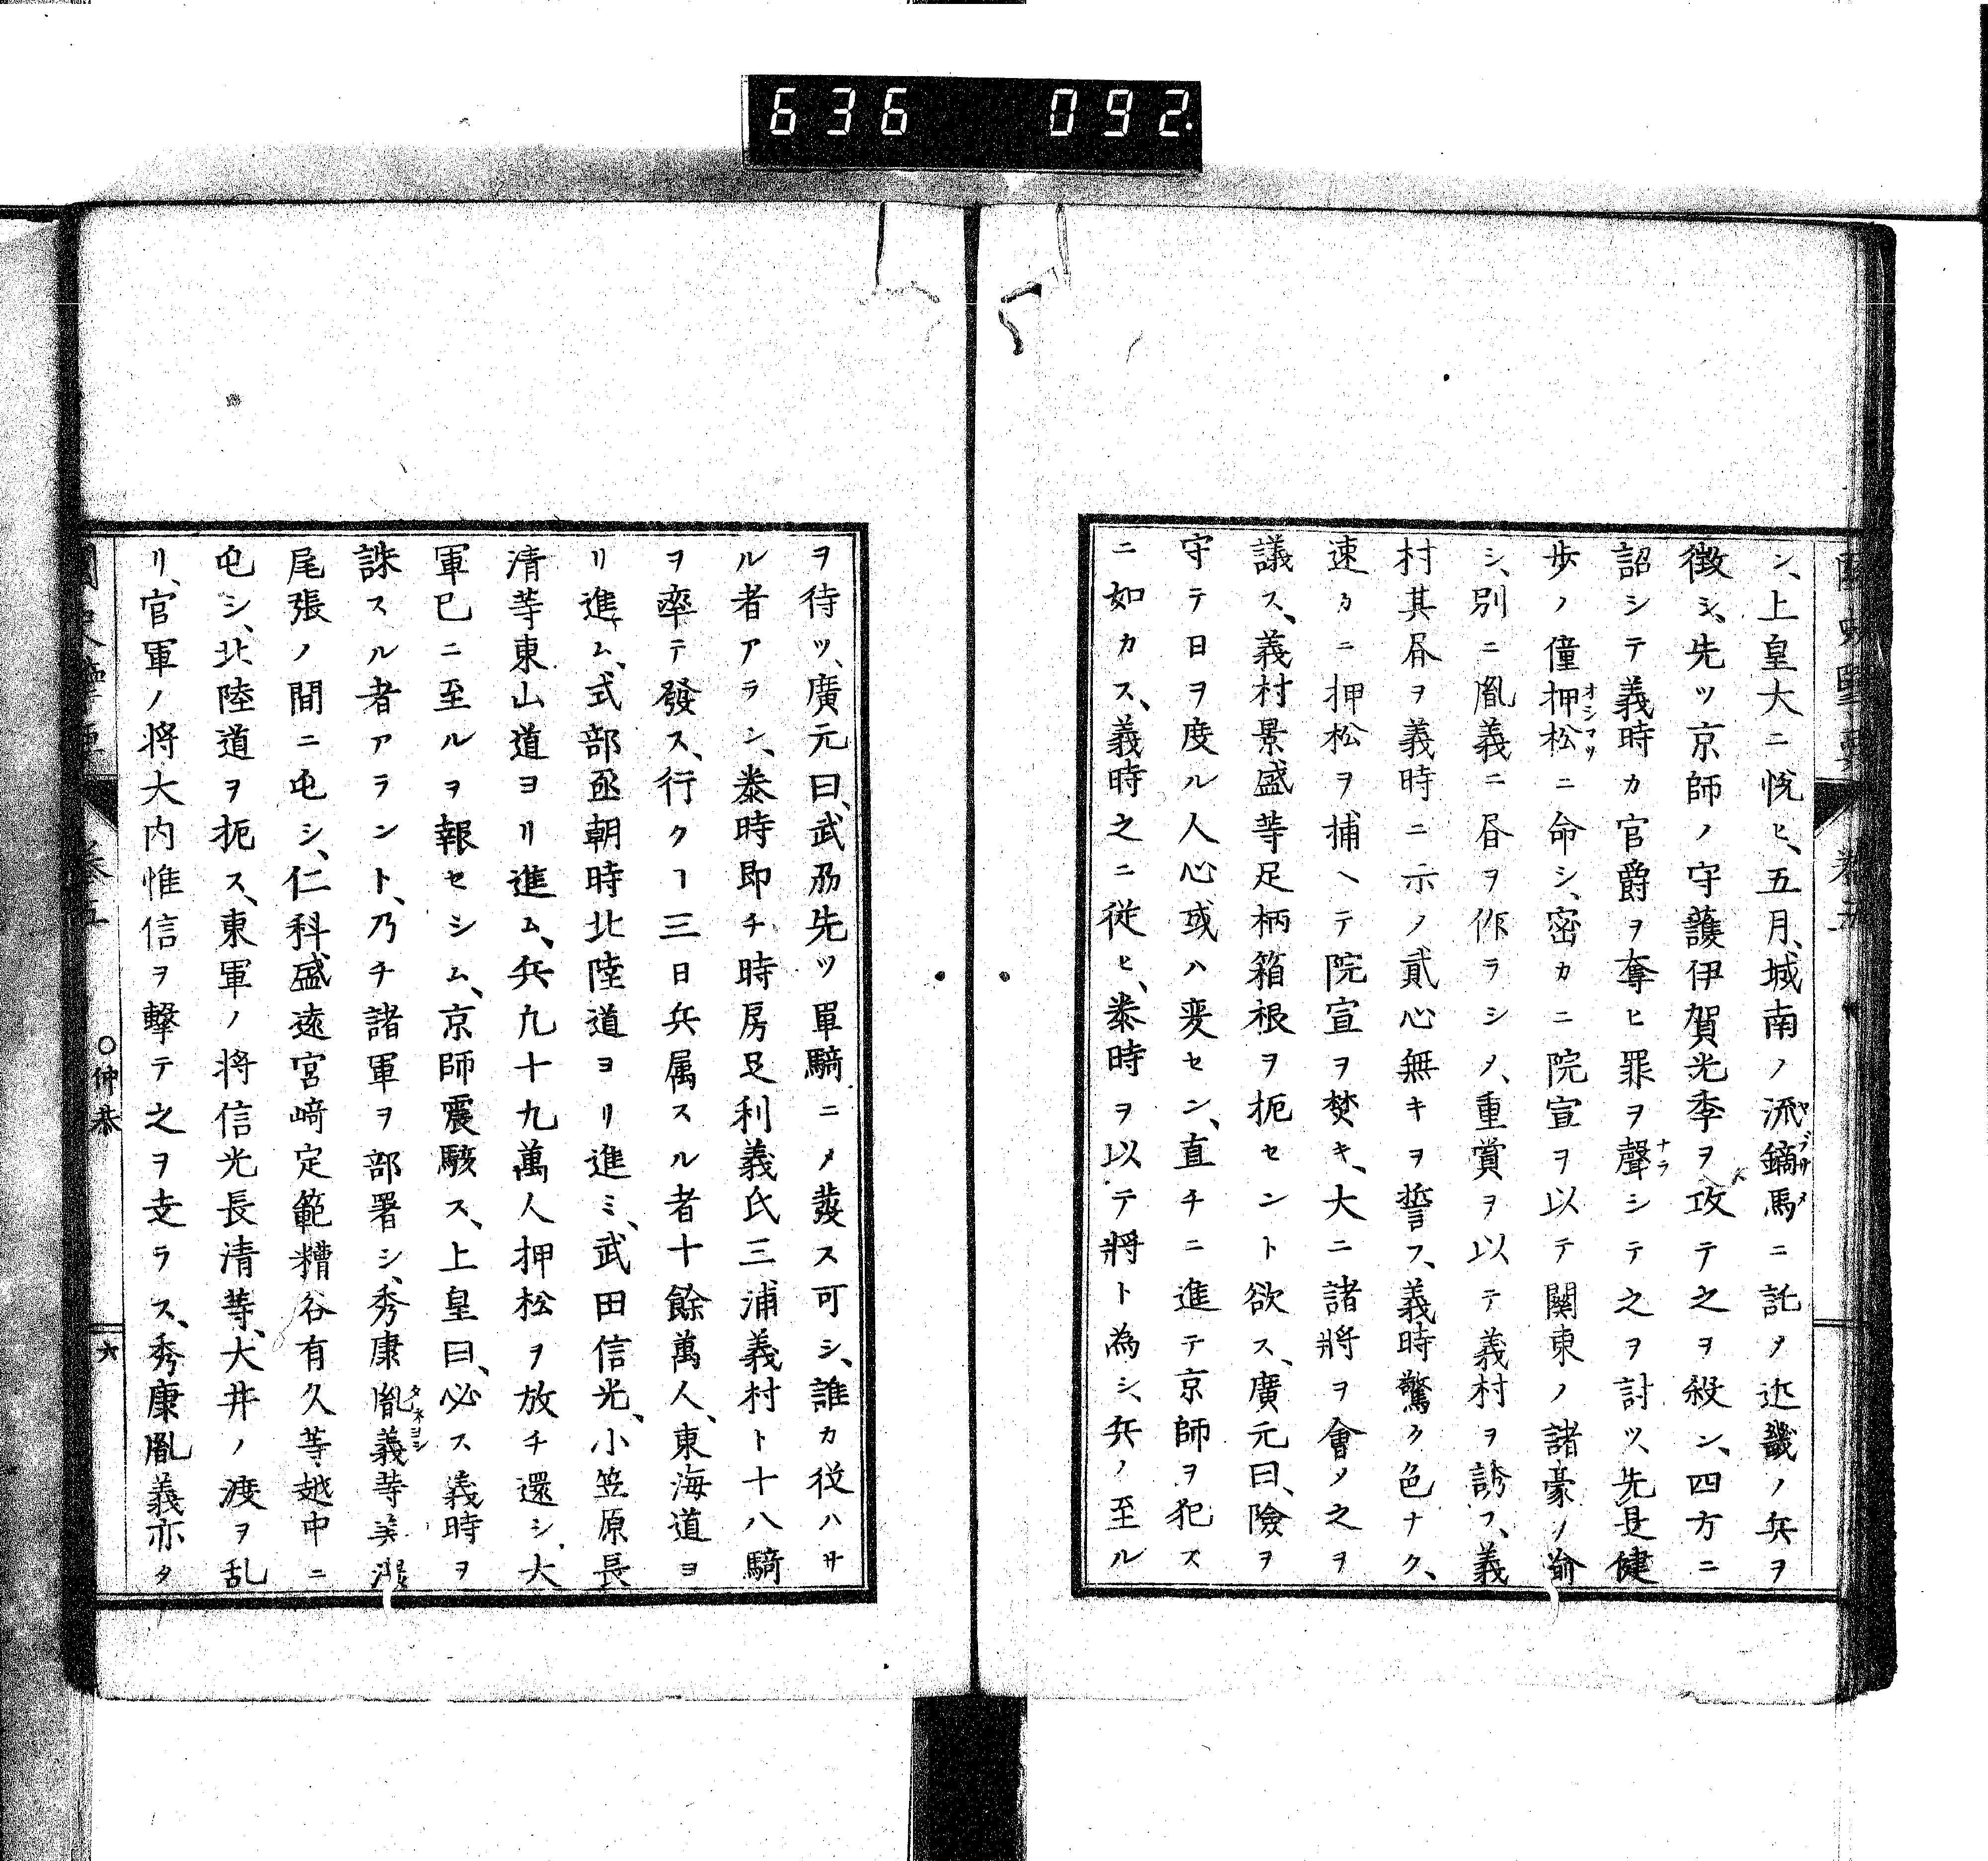 636 092
シ、上皇大ニ悅ヒ、五月、城南ノ流鏑馬ニ託メ近畿ノ兵ヲ
徴シ、先ツ京師ノ守護伊賀光季ヲ攻テ之ヲ殺シ、四方ニ
詔シテ義時カ官爵ヲ奪ヒ罪ヲ聲シテ之ヲ討ツ、先是健
歩ノ僮押松ニ命シ、密カニ院宣ヲ以テ関東ノ諸豪ノ諭
シ、別ニ胤義ニ昏ヲ作ラシメ、重賞ヲ以テ義村ヲ誘フ、義
村其昏ヲ義時ニ示メ貳心無キヲ誓フ、義時驚ク色ナク、
速カニ押松ヲ捕ヘテ院宣ヲ焚キ、大ニ諸將ヲ會メ之ヲ
議ス、義村景盛等足柄箱根ヲ扼セント欲ス、廣元曰、險ヲ
守テ日ヲ度ル人心或ハ変セン、直チニ進テ京師ヲ犯ス
ニ如カス、義時之ニ従ヒ、泰時ヲ以テ將ト為シ、兵ノ至ル
ヲ待ツ、廣元曰、武刕先ツ單騎ニメ發ス可シ、誰カ從ハサ
ル者アラン、泰時即チ時房足利義氏三浦義村ト十八騎
ヲ率テ發ス、行クヿ三日兵属スル者十餘萬人、東海道ヨ
リ進ム、式部丞朝時北陸道ヨリ進ミ、武田信光、小笠原長
清等東山道ヨリ進ム、兵凢十九萬人押松ヲ放チ還シ、大
軍已ニ至ルヲ報セシム、京師震駭ス、上皇曰、必ス義時ヲ
誅スル者アラント、乃チ諸軍ヲ部署シ、秀康胤義等美濃
尾張ノ間ニ屯シ、仁科盛遠宮﨑定範糟谷有久等越中ニ
屯シ、北陸道ヲ扼ス、東軍ノ将信光長清等、大井ノ渡ヲ乱
リ、官軍ノ将大内惟信ヲ擊テ之ヲ走ラス、秀康胤義亦タ
卷五
○仲恭
六